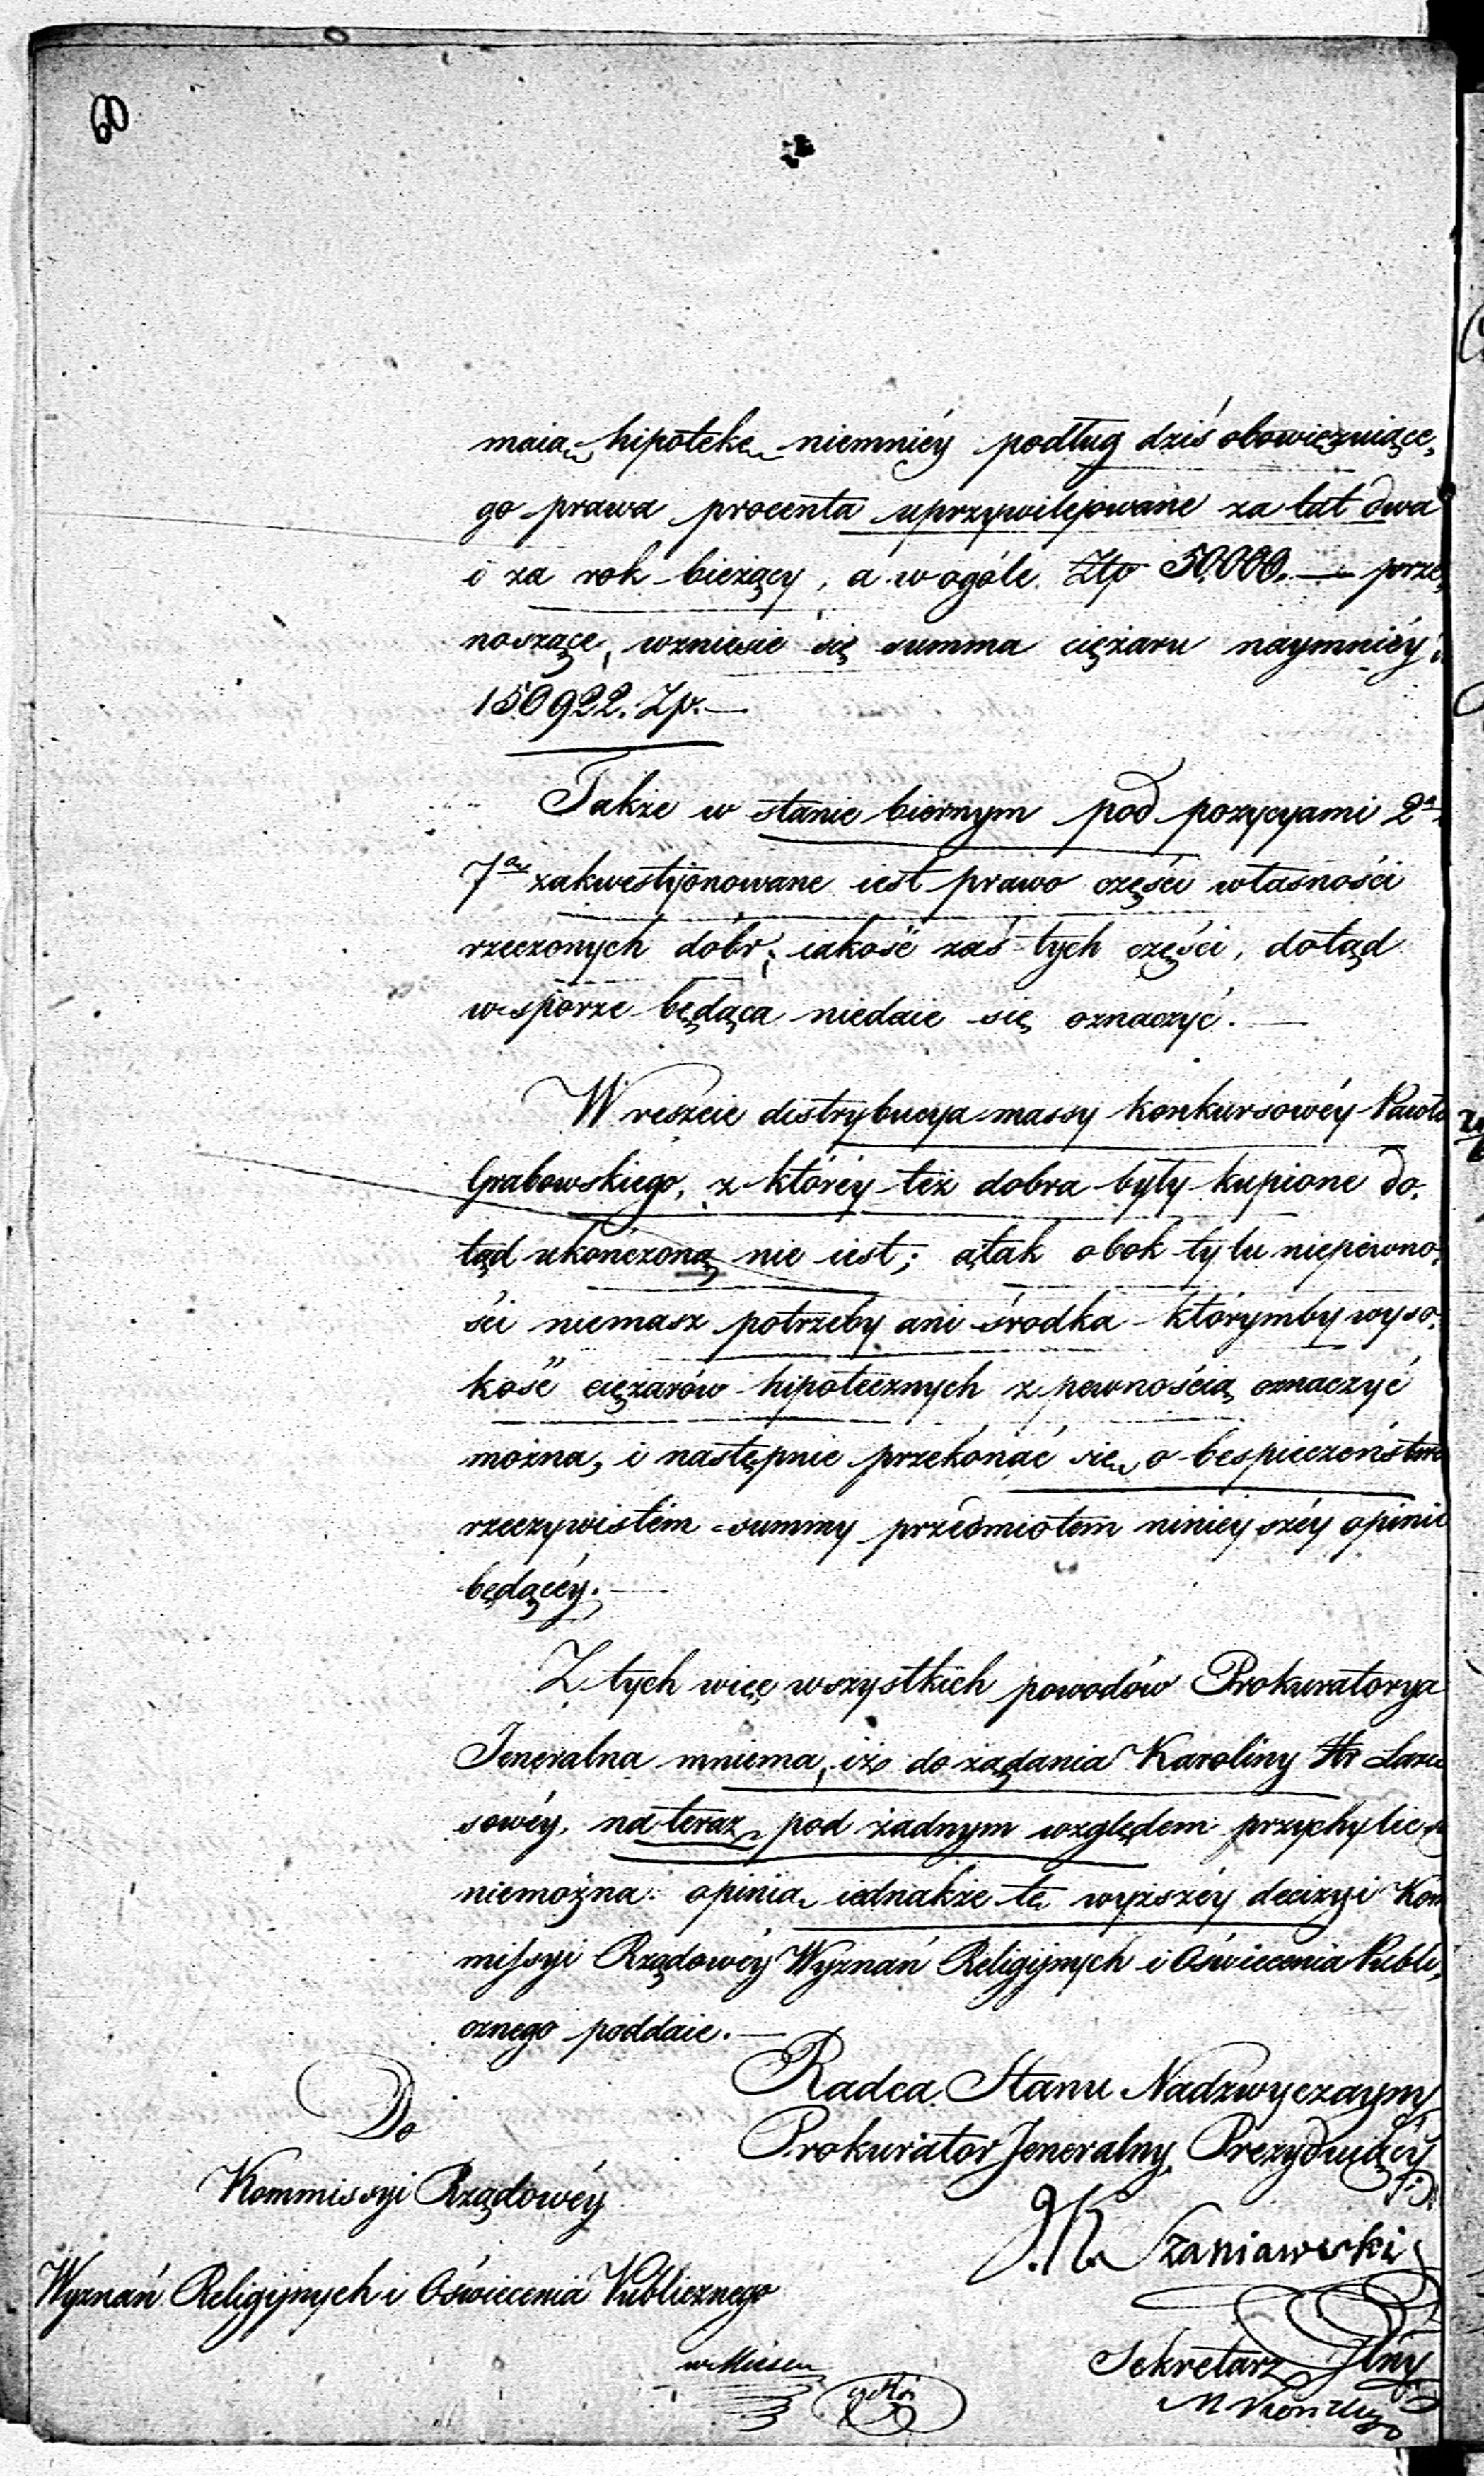 60
maią hipotekę niemniéy podług dziś obowiązuiące,
go prawa procenta uprzywilejowane za lat dwa
i za rok bieżący, a w ogóle Złp 50000.— prze,
noszące, wzniesie się summa ciężaru naymniéy
150922. Zp.—
Także w stanie biernym pod pozycyami 2ą
7ą zakwestjonowane iest prawo części własności
rzeczonych dóbr; iakość zaś tych części, dotąd
w sporze będąca niedaie się oznaczyć.—
W reszcie distrybucya massy konkursowéy Pawła
Grabowskiego, z któréy też dobra były kupione do,
tąd ukończoną nie iest; a tak obok tylu niepewno,
ści niemasz potrzeby ani środka którymby wyso,
kość ciężarów hipotecznych z pewnością oznaczyć
można, i następnie przekonać się o bespieczeństwie
rzeczywistém summy przedmiotem ninieyszéy opinii
będącéy.—
Z tych więc wszystkich powodów Prokuratorya
Jeneralna mniema, iż do żądania Karoliny Hr
sowéy, na teraz pod żadnym względem przychylić się
niemożna: opinią iednakże tę wyższéy decizyi Kom
missyi Rządowéy Wyznań Religijnych i Oświecenia Publi,
cznego poddaie.—
Radca Stanu Nadzwyczayny
Prokurator Jeneralny Prezyduiący
J. K. Szaniawski
Do
Kommissyi Rządowéy
Wyznań Religijnych i Oświecenia Publicznego
Sekretarz Jlny